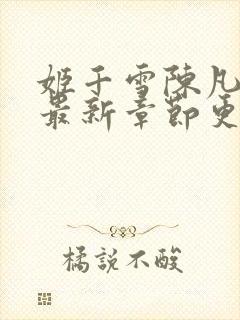 姬于雪陳凡
最新章節更
橘說不酸